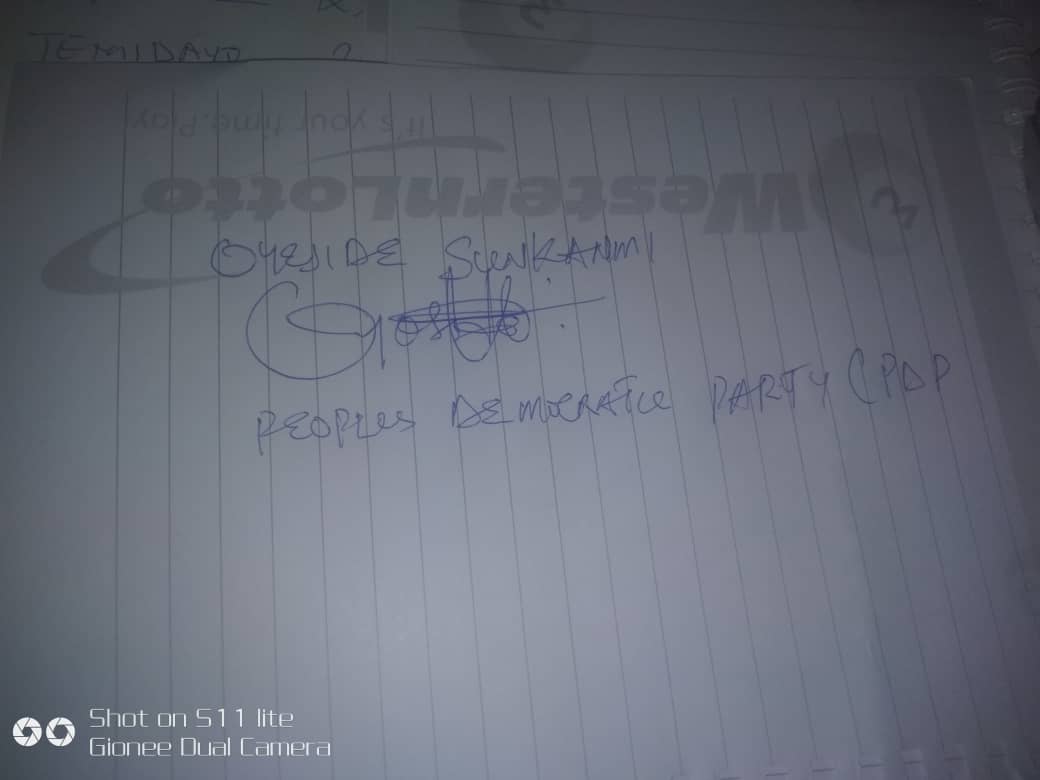 TEMIDAYO
It's your time. Play
WesternLotto
OYESIDE SUNKANMI
PEOPLES DEMOCRATIC PARTY (PDP
Shot on S11 lite
Gionee Dual Camera